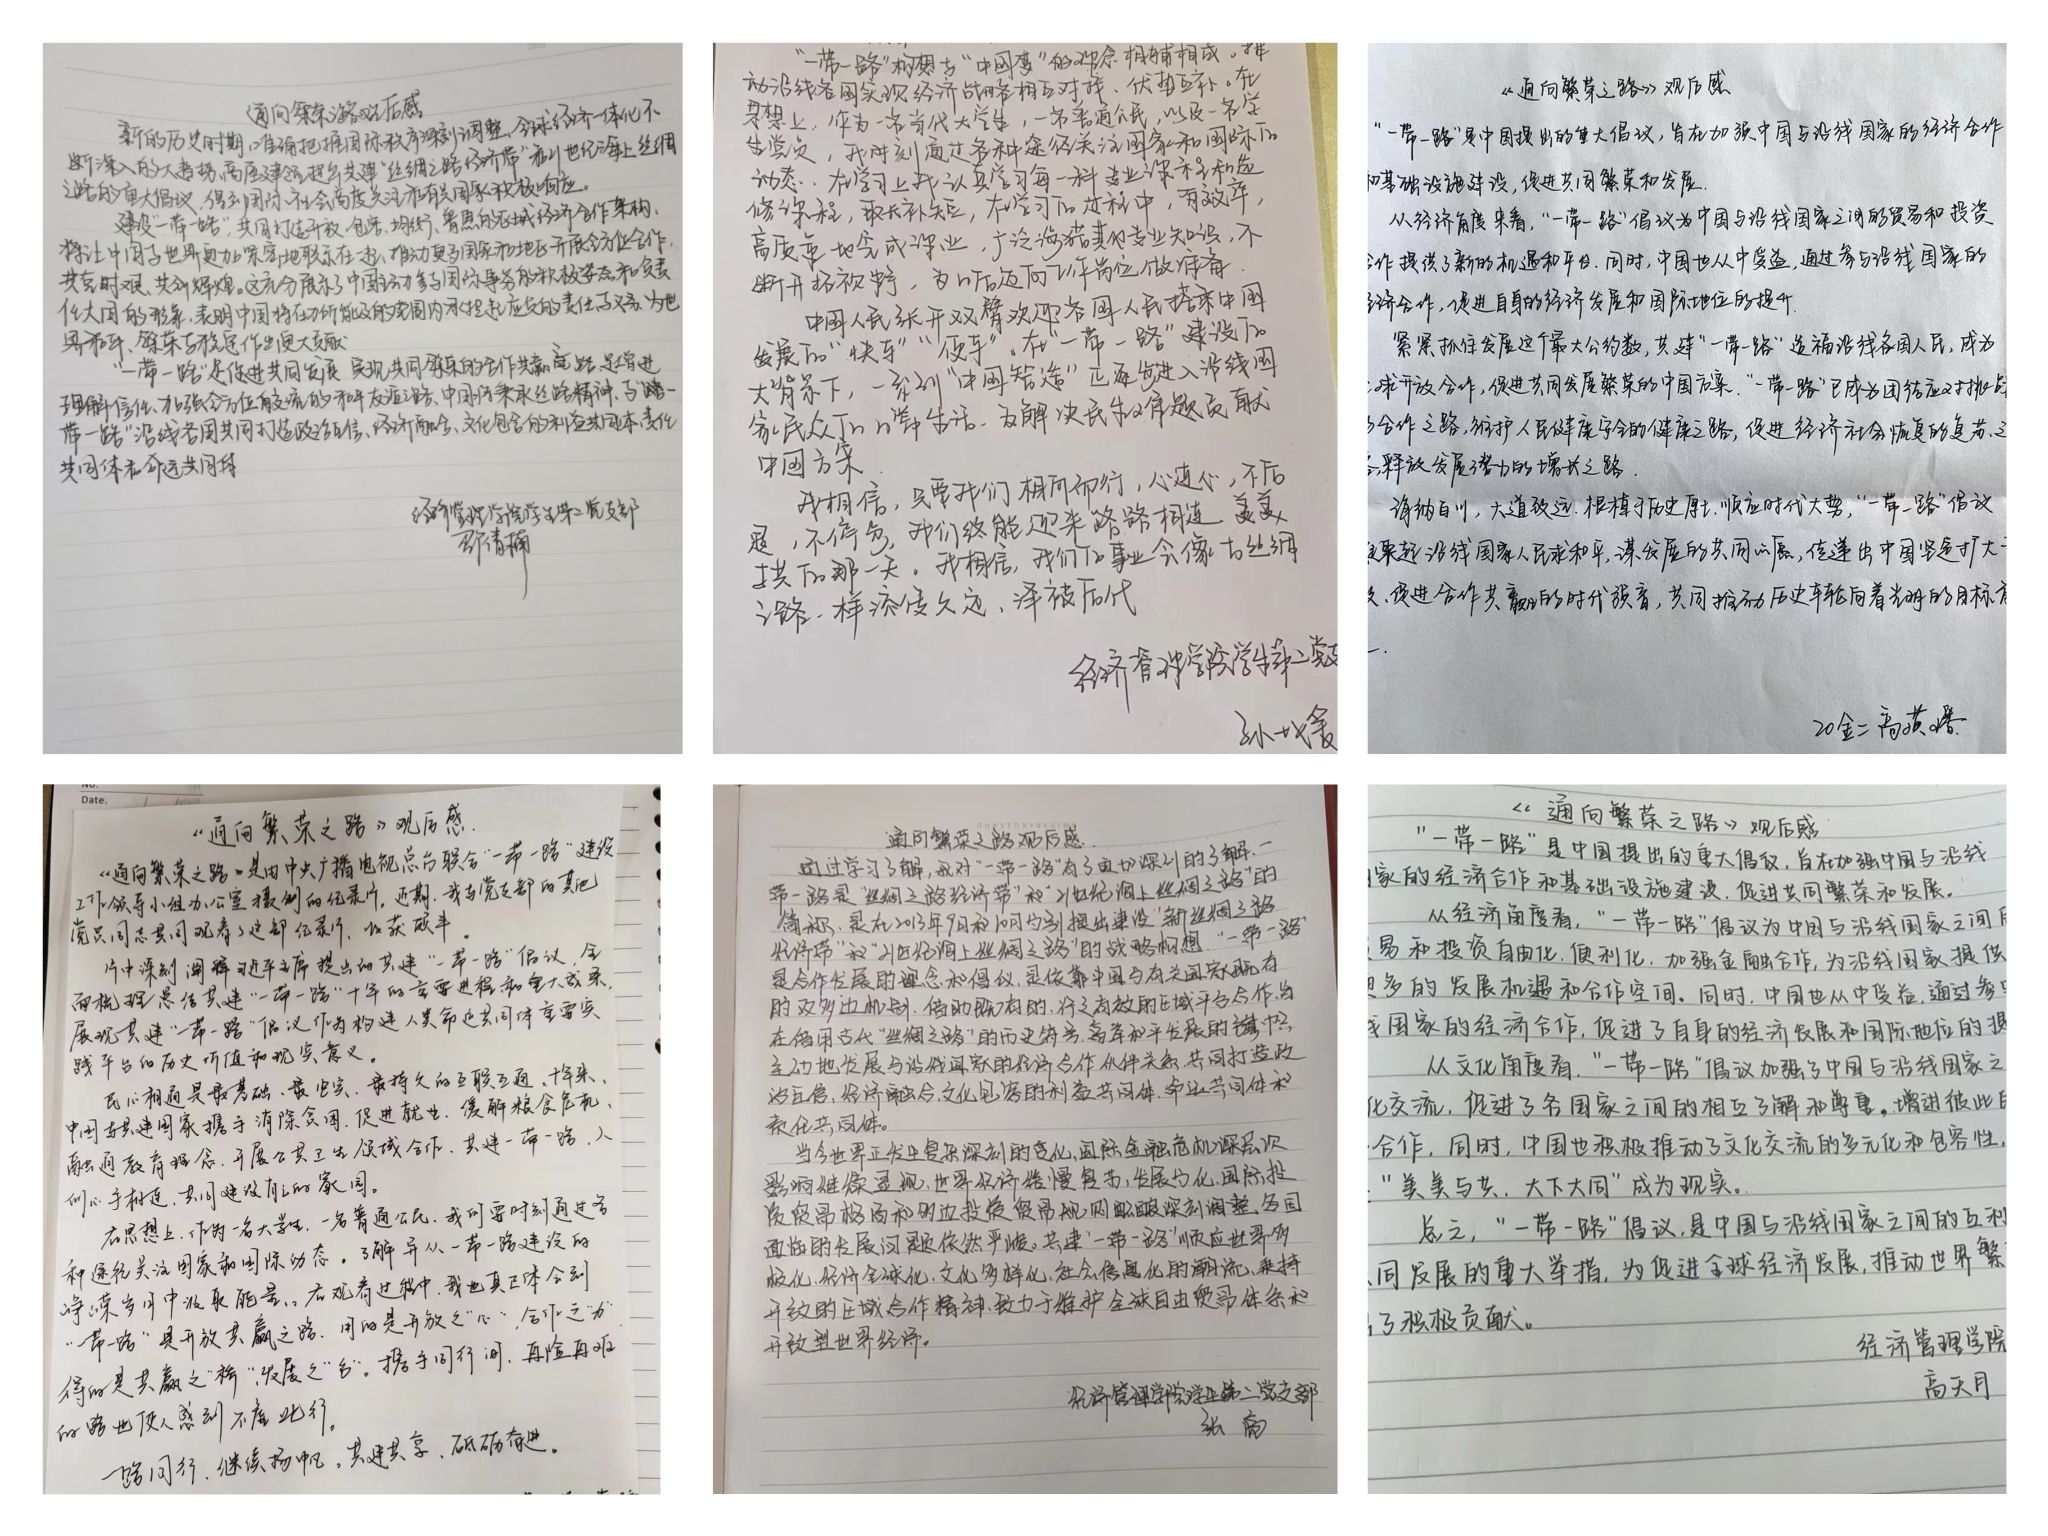 通向繁荣之路观后感
新的历史时期,准确把握国际秩序深刻调整、全球经济一体化不
断深入的大趋势,高层建流提出共建"丝绸之路经济带"和21世纪海上丝绸
之路的重大倡议,得到国际社会高度关注和有关国家积极响应。
建设"一带一路",共同打造开放、包容、均衡、普惠的区域经济合作架构、
将让中国与世界更加紧密地联系在一起,推动更多国家和地区开展全方位合作,
共克时艰、共创辉煌。这充分展示了中国主动参与国际事务的积极姿态和负责
任大国的形象,表明中国将在力所能及的范围内承担起应负的责任与义务、为世
界和平、繁荣与稳定作出更大贡献
"一带一路"是促进共同发展 实现共同繁荣的合作共赢之路,是增进
理解信任、加强全方位交流的和平友谊之路、中国将秉承丝路精神,与"一
带一路"沿线各国共同打造政治互信、经济融合、文化包容的利益共同体、责任
共同体和命运共同体
经济管理学院学生第二党支部
清楠
"一带一路"构想与"中国梦"的理念相辅相成。推
动沿线各国实现经济战略相互对接、优势互补。在
思想上,作为一名当代大学生,一名普通公民,以及一名学
生党员,我时刻通过各种途径关注国家和国际的
动态。在学习上我认真学习每一科专业课程和选
修课程,取长补短,在学习的过程中,有效率,
高质量地完成课业,广泛涉猎其他专业知识,不
断开拓视野,为以后迈向工作岗位做准备.
中国人民张开双臂欢迎各国人民搭乘中国
发展的"快车""便车"。在"一带一路"建设的
大背景下,一系列"中国智造"正逐步进入沿线国
家民众的日常生活.为解决民生难题贡献
中国方案.
我相信,只要我们相向而行,心连心,不后
退,不停步,我们终能迎来路路相连 美美
与共的那一天。我相信,我们的事业会像古丝绸
之路一样流传久远、泽被后代
经济管理学院学生第二党支
孙
《通向繁荣之路》观后感
"一带一路"是中国提出的重大倡议,旨在加强中国与沿线国家的经济合作
和基础设施建设,促进共同繁荣和发展.
从经济角度来看,"一带一路"倡议为中国与沿线国家之间的贸易和投资
合作提供了新的机遇和平台.同时,中国也从中受益,通过参与沿线国家的
经济合作,促进自身的经济发展和国际地位的提升.
紧紧抓住发展这个最大公约数,共建"一带一路"造福沿线各国人民,成为
求开放合作,促进共同发展繁荣的中国方案."一带一路"已成为团结应对挑战
合作之路,维护人民健康安全的健康之路,促进经济社会恢复的复苏之
释放发展潜力的增长之路.
海纳百川,大道致远.根植于历史厚土.顺应时代大势,"一带一路"倡议
聚起沿线国家人民求和平,谋发展的共同心愿,传递出中国坚定扩大
促进合作共赢的时代强音,共同推动历史车轮向着光明的目标
20金二 高英
Date.
《通向繁荣之路》观后感.
《通向繁荣之路》是由中央广播电视总台联合"一带一路"建设
工作领导小组办公室摄制的纪录片。近期,我与党支部的其他
党员同志共同观看了这部纪录片,收获颇丰。
片中深刻阐释习近平主席提出的共建"一带一路"倡议,全
面梳理总结共建"一带一路"十年的重要进程和重大成果,
展现共建"一带一路"倡议作为构建人类命运共同体重要实
践平台的历史价值和现实意义。
民心相通是最基础、最坚实、最持久的互联互通、十年来、
中国与共建国家携手消除贫困、促进就业、缓解粮食危机、
融通教育理念、开展公共卫生领域合作,共建一带一路,人
们心手相连、共同建设自己的家园。
在思想上,作为一名大学生、一名普通公民,我们要时刻通过各
种途径关注国家和国际动态。了解并从一带一路建设的
峥嵘岁月中汲取能量。在观看过程中,我也真正体会到
"一带一路"是开放共赢之路,用的是开放之"心",合作之"力"
得的是共赢之"桥",发展之"台"。携手同行间,再险再艰
的路也使人感到不虚此行。
一路同行、继续扬帆,共建共享、砥砺奋进。
通向繁荣之路观后感.
通过学习了解,我对"一带一路"有了更加深刻的了解.一
带一路是"丝绸之路经济带"和"21世纪海上丝绸之路"的
简称,是在2013年9月和10月分别提出建设"新丝绸之路
经济带"和"21世纪海上丝绸之路"的战略构想."一带一路"
是合作发展的理念和倡议,是依靠中国与有关国家既有
的双多边机制,借助既有的、行之有效的区域平台合作,旨
在借用古代"丝绸之路"的历史符号,高举和平发展的旗帜,
主动地发展与沿线国家的经济合作伙伴关系,共同打造政
治互信,经济融合,文化包容的利益共同体,命运共同体和
责任共同体。
当今世界正发生复杂深刻的变化,国际金融危机深层次
影响继续显现,世界经济缓慢复苏,发展分化,国际投
资贸易格局和多边投资贸易规则酝酿深刻调整,各国
面临的发展问题依然严峻。共建"一带一路"顺应世界多
极化,经济全球化,文化多样化,社会信息化的潮流,秉持
开放的区域合作精神,致力于维护全球自由贸易体系和
开放型世界经济。
经济管理学院学生第二党支部
张
《通向繁荣之路》观后感
"一带一路"是中国提出的重大倡议,旨在加强中国与沿线
国家的经济合作和基础设施建设,促进共同繁荣和发展。
从经济角度看,"一带一路"倡议为中国与沿线国家之间
易和投资自由化,便利化,加强金融合作,为沿线国家提供
更多的发展机遇和合作空间。同时,中国也从中受益,通过参
线国家的经济合作,促进了自身的经济发展和国际地位的提
从文化角度看,"一带一路"倡议加强了中国与沿线国家之
化交流,促进了各国家之间的相互了解和尊重。增进彼此
合作,同时,中国也积极推动了文化交流的多元化和包容性,
"美美与共,大下大同"成为现实。
总之,"一带一路"倡议,是中国与沿线国家之间的互利
同发展的重大举措,为促进全球经济发展,推动世界繁
了积极贡献。
经济管理学院
高天月